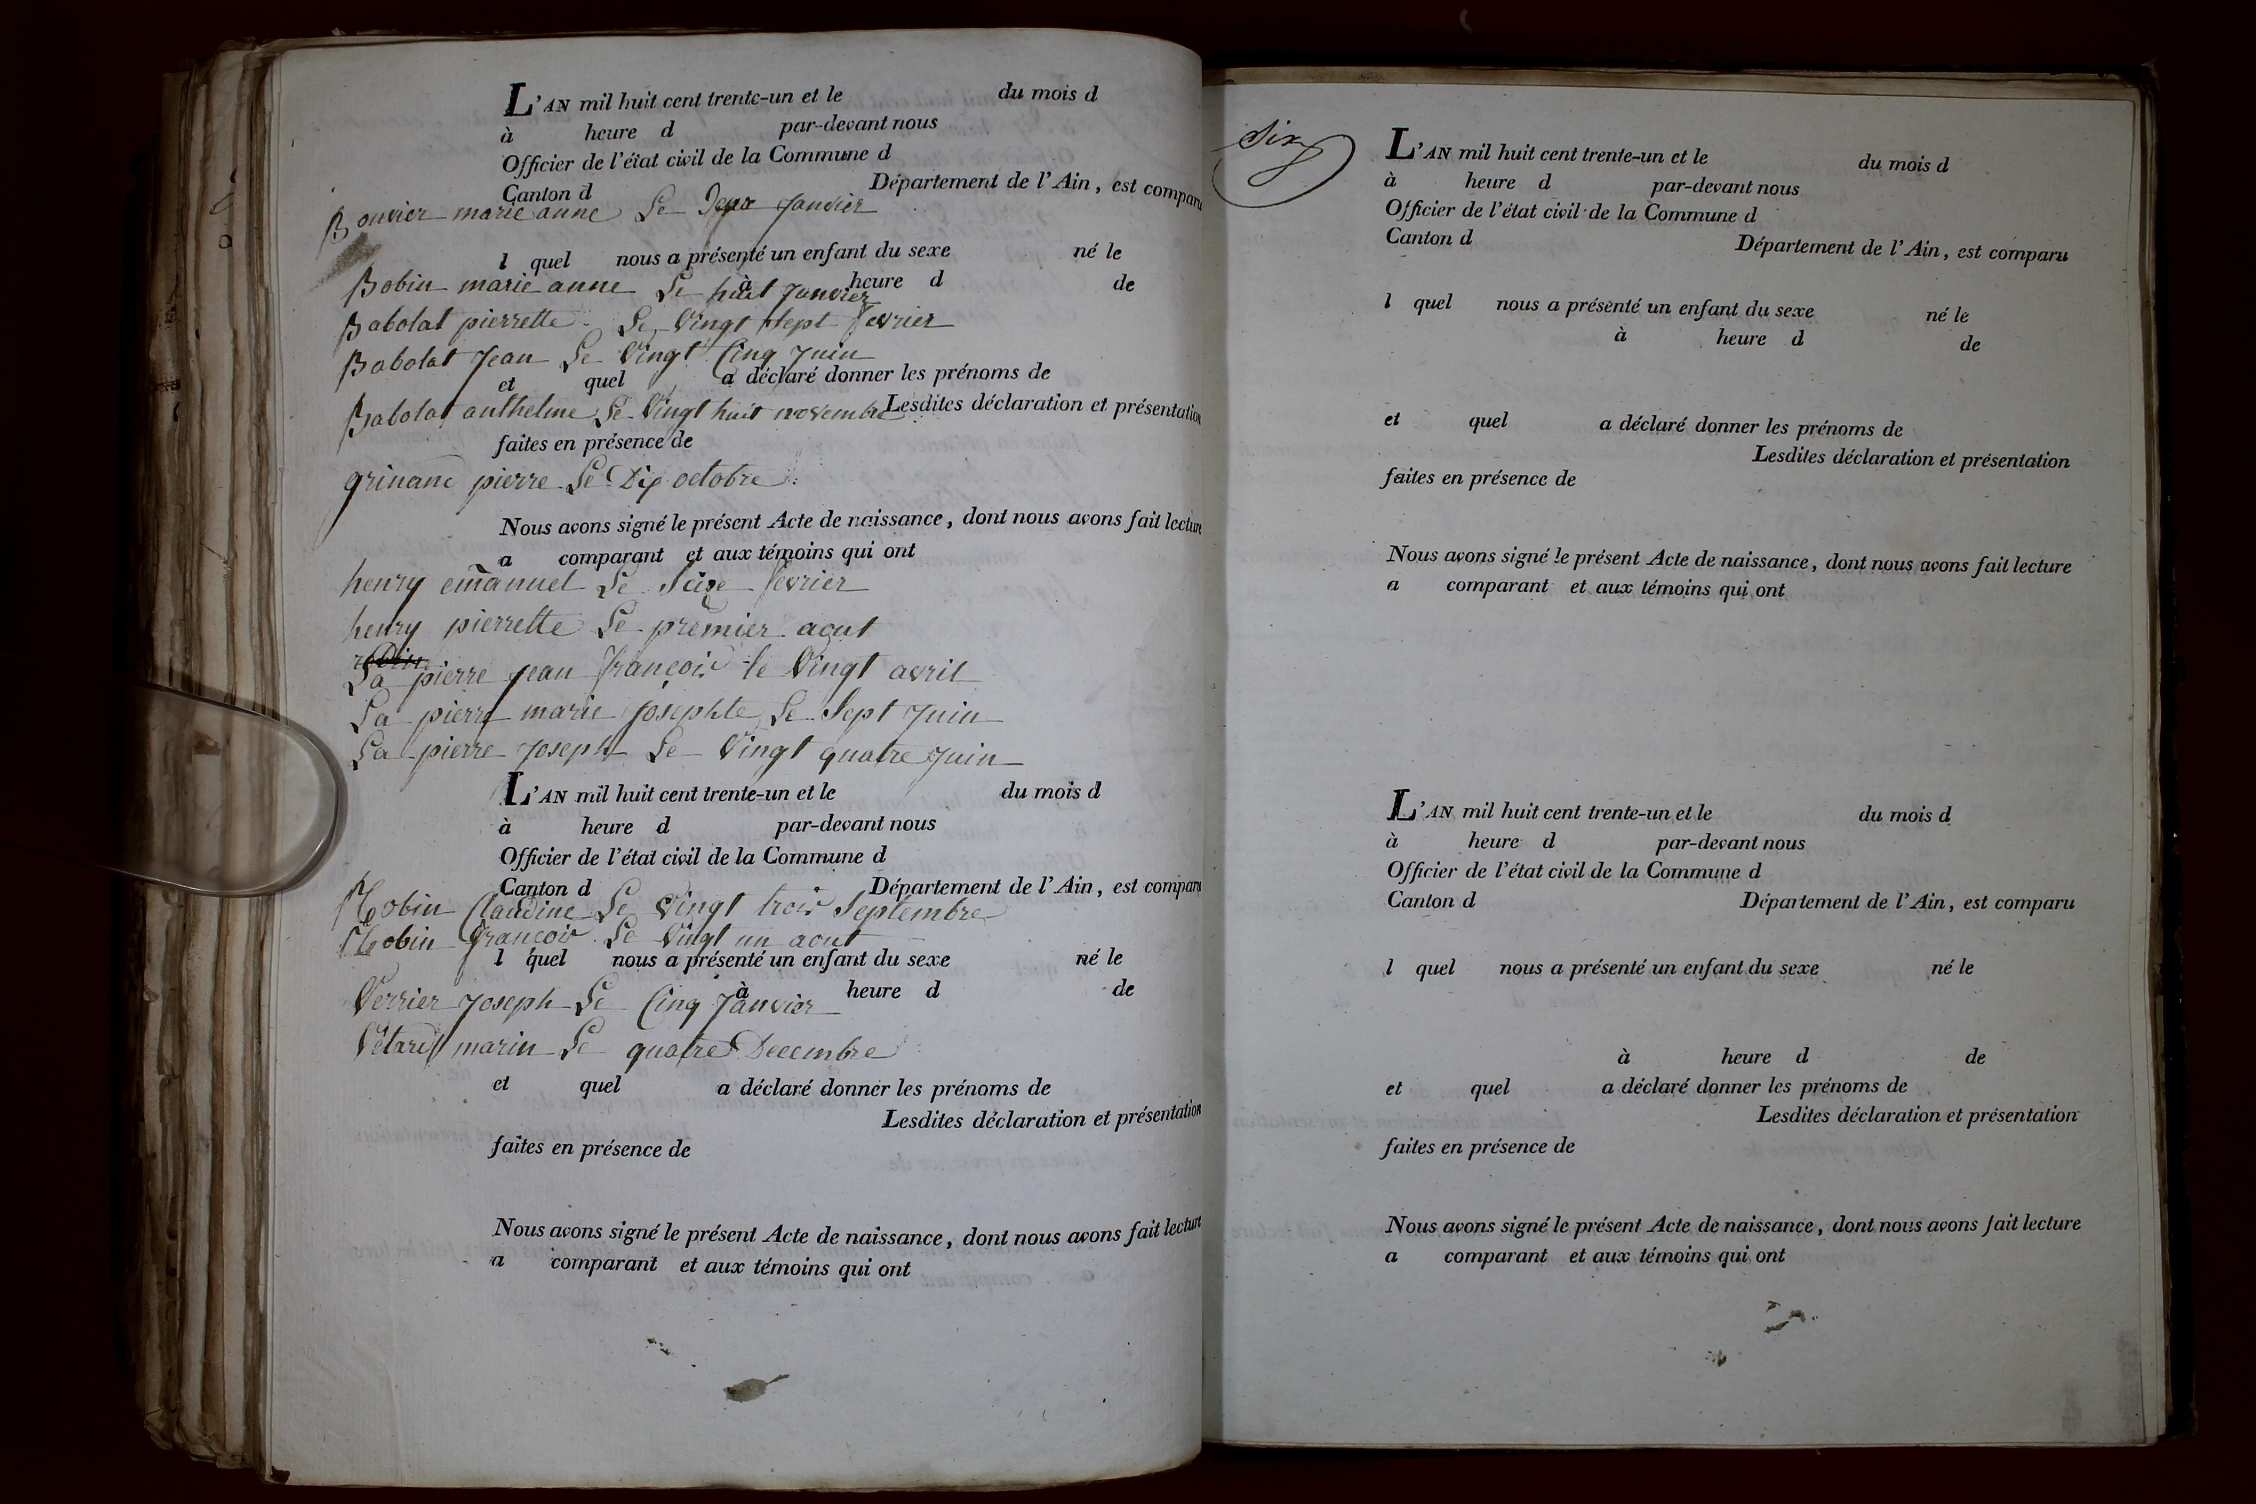 L'AN mil huit cent trente-un et le du mois d
à heure d par-devant nous
Officier de l'état civil de la Commune d
Canton d Département de l'Ain, est comparu
Bouvier marie anne Le Deux Janvier
l quel nous a présenté un enfant du sexe né le
à heure d de
Bobin marie anne Le huit Janvier
Babolat pierrette Le Vingt Sept fevrier
Babolat Jean Le Vingt Cinq Juin
et quel a déclaré donner les prénoms de
Babolat anthelme Le Vingt huit novembre
Lesdites déclaration et présentation
faites en présence de
pierre Le Dix octobre
Nous avons signé le présent Acte de naissance, dont nous avons fait lecture
a comparant et aux témoins qui ont
henry emanuel Le Seize fevrier
henry pierrette Le premier aout
La pierre jean françois le Vingt avril
La pierre marie josephte Le Sept Juin
La pierre Joseph Le Vingt quatre Juin
L'AN mil huit cent trente-un et le du mois d
à heure d par-devant nous
Officier de l'état civil de la Commune d
Canton d Département de l'Ain, est comparu
Robin Claudine Le Vingt trois Septembre
Robin françois Le Vingt un aout
l quel nous a présenté un enfant du sexe né le
à heure d de
Verrier Joseph Le Cinq Janvier
Vétard marin Le quatre Decembre
et quel a déclaré donner les prénoms de
Lesdites déclaration et présentation
faites en présence de
Nous avons signé le présent Acte de naissance, dont nous avons fait lecture
a comparant et aux témoins qui ont
Six
L'AN mil huit cent trente-un et le du mois d
à heure d par-devant nous
Officier de l'état civil de la Commune d
Canton d Département de l'Ain, est comparu
l quel nous a présenté un enfant du sexe né le
à heure d de
et quel a déclaré donner les prénoms de
Lesdites déclaration et présentation
faites en présence de
Nous avons signé le présent Acte de naissance, dont nous avons fait lecture
a comparant et aux témoins qui ont
L'AN mil huit cent trente-un et le du mois d
à heure d par-devant nous
Officier de l'état civil de la Commune d
Canton d Département de l'Ain, est comparu
l quel nous a présenté un enfant du sexe né le
à heure d de
et quel a déclaré donner les prénoms de
Lesdites déclaration et présentation
faites en présence de
Nous avons signé le présent Acte de naissance, dont nous avons fait lecture
a comparant et aux témoins qui ont